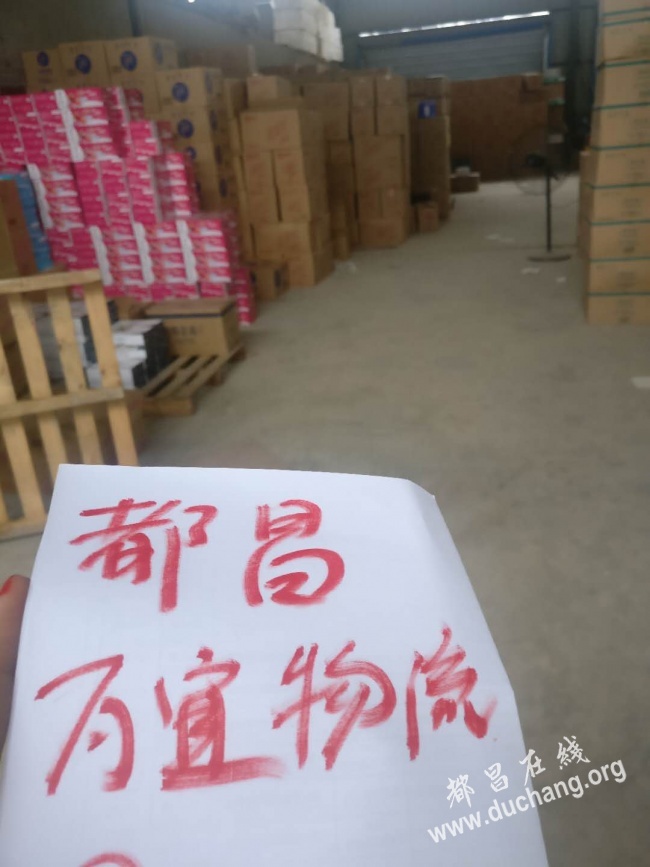 都昌
百宜物流
都昌在線
www.duchang.org